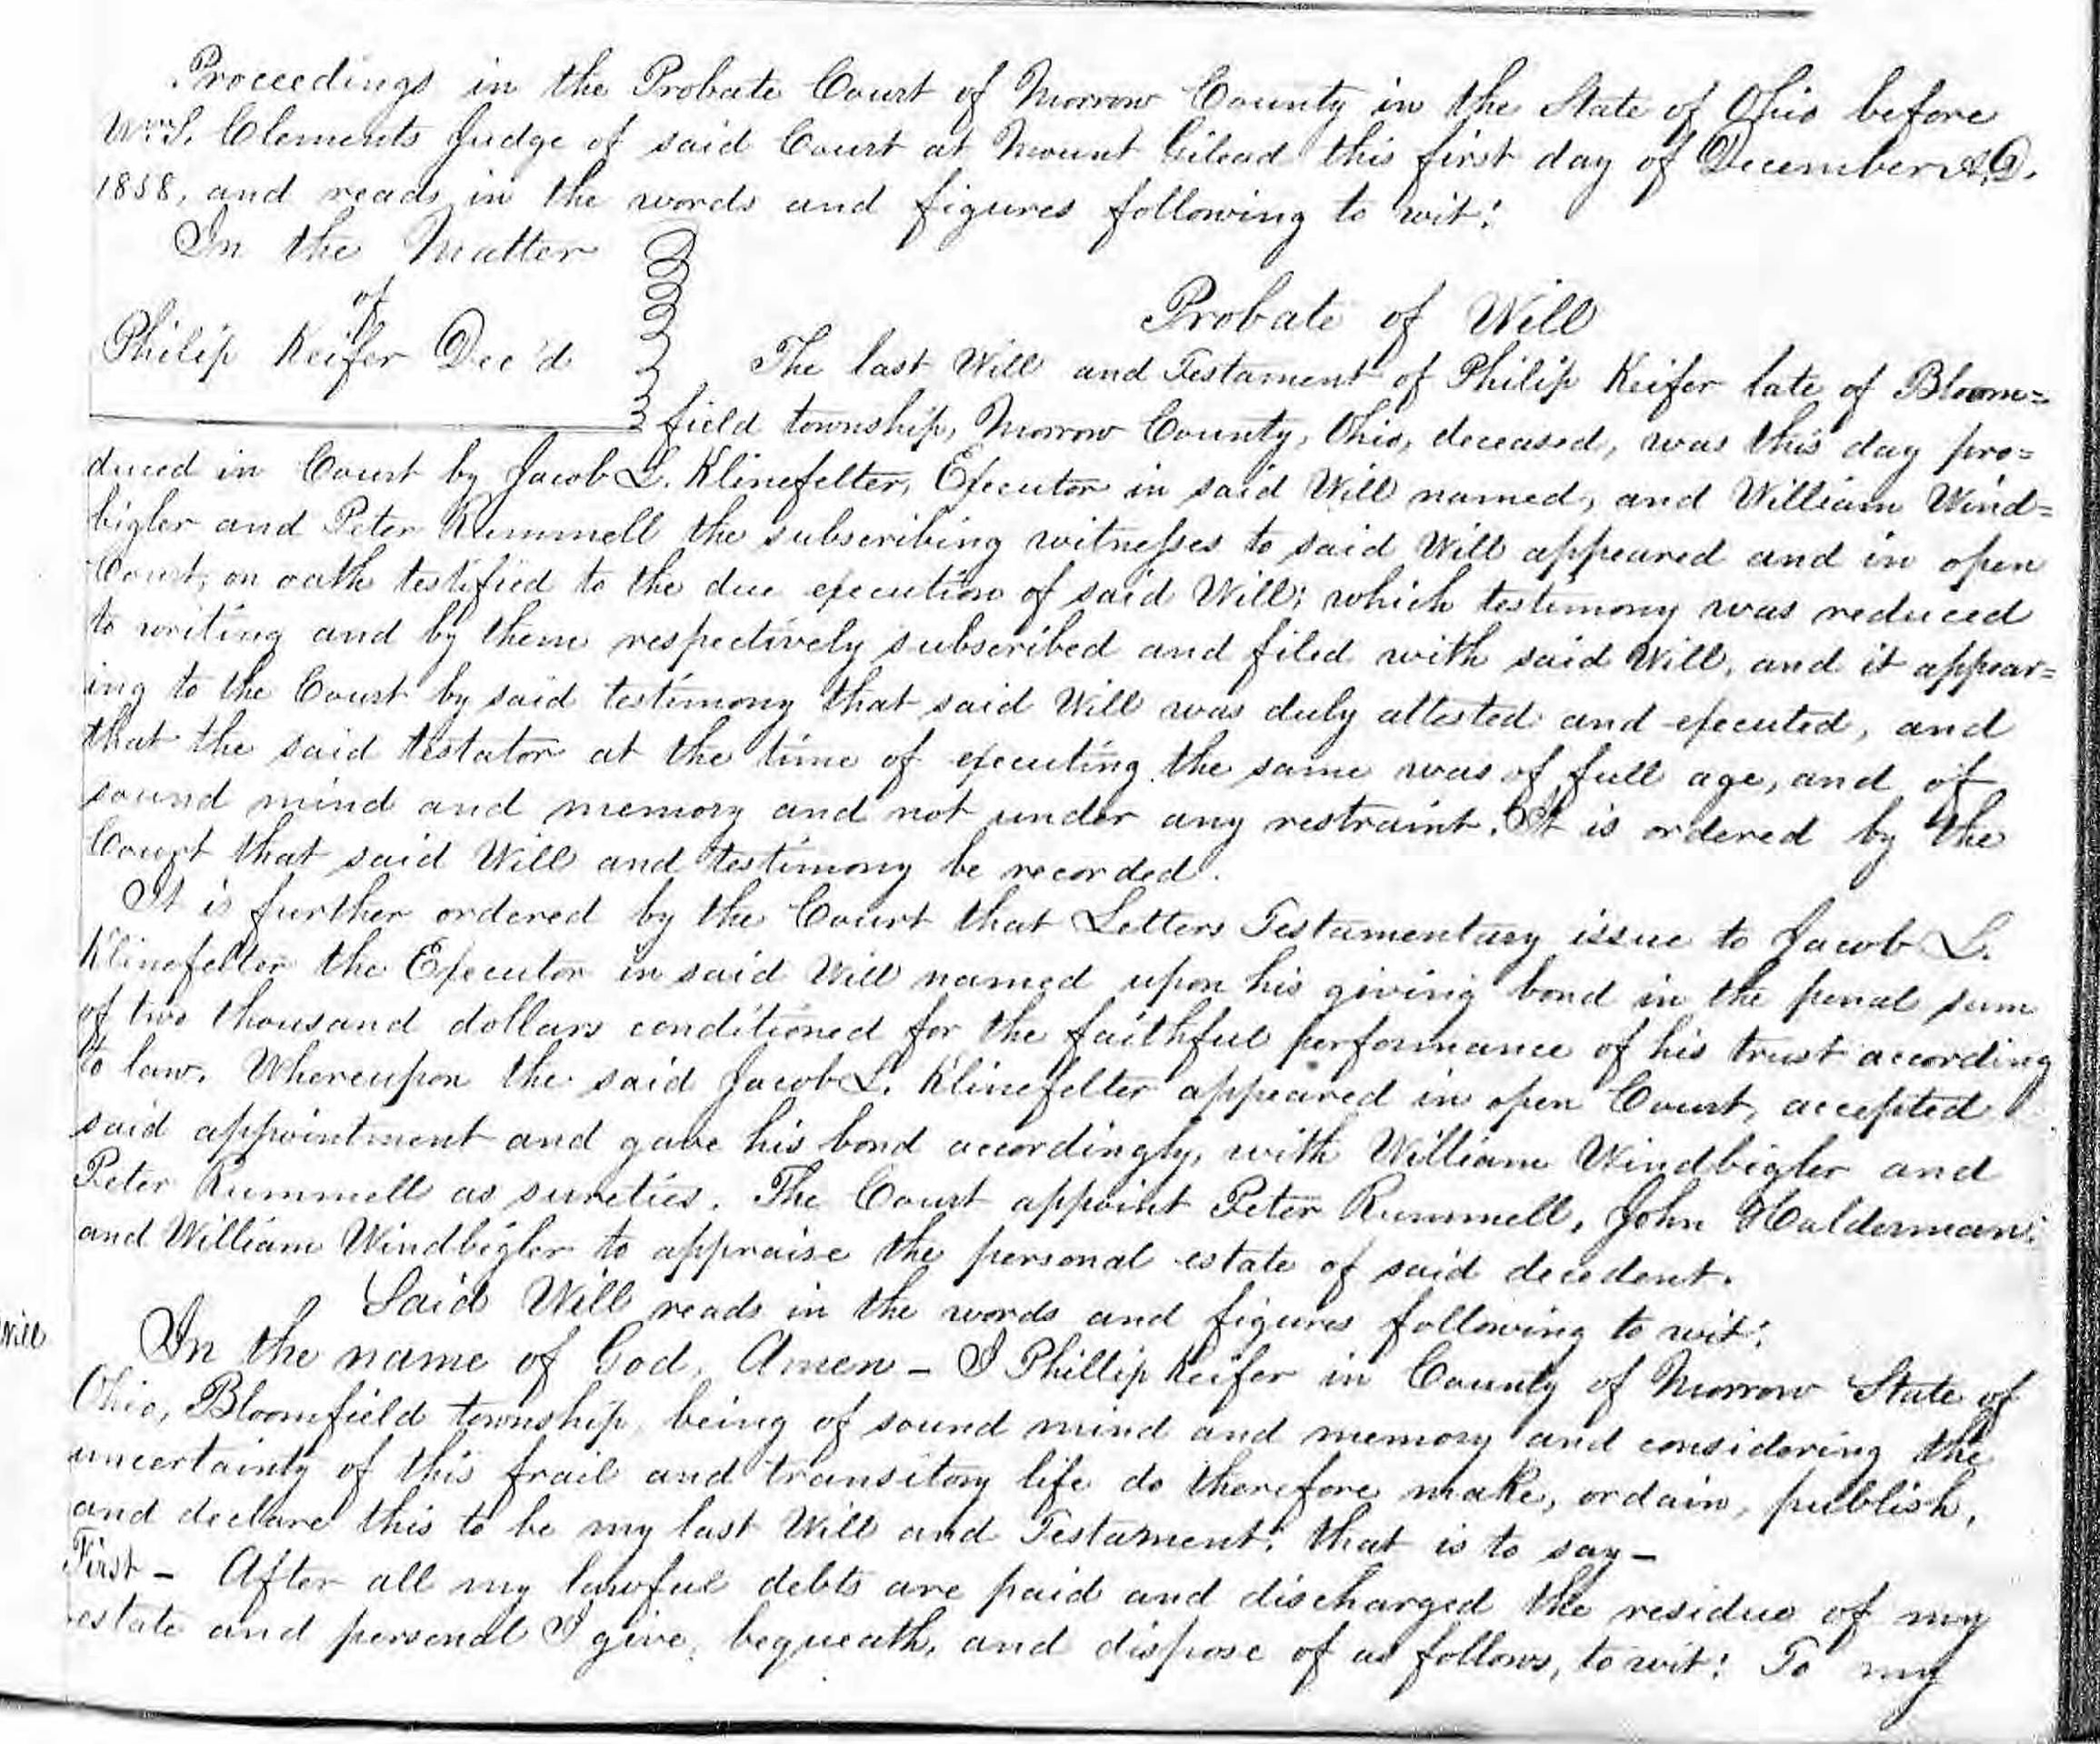 Proceedings in the Probate Court of Morrow County in the State of Ohio before
Wm. S. Clements Judge of said Court at Mount Gilead this first day of December A.D.
1858, and reads in the words and figures following to wit:
In the Matter
of
Philip Keifer Dec'd
Probate of Will
The last Will and Testament of Philip Keifer late of Bloom=
field township, Morrow County, Ohio, deceased, was this day pro=
duced in Court by Jacob L. Klinefelter, Executor in said Will named, and William Wind=
bigler and Peter Rummell the subscribing witnesses to said Will appeared and in open
Court, on oath testified to the due execution of said Will; which testimony was reduced
to writing and by them respectively subscribed and filed with said Will, and it appear=
ing to the Court by said testimony that said Will was duly attested and executed, and
that the said testator at the time of executing the same was of full age, and of
sound mind and memory and not under any restraint. It is ordered by the
Court that said Will and testimony be recorded.
It is further ordered by the Court that Letters Testamentary issue to Jacob L.
Klinefelter the Executor in said Will named upon his giving bond in the penal sum
of two thousand dollars conditioned for the faithful performance of his trust according
to law. Whereupon the said Jacob L. Klinefelter appeared in open Court, accepted
said appointment and gave his bond accordingly, with William Windbigler and
Peter Rummell as sureties. The Court appoint Peter Rummell, John Halderman
and William Windbigler to appraise the personal estate of said decedent.
Said Will reads in the words and figures following to wit:
Will
In the name of God, Amen – I Phillip Keifer in County of Morrow State of
Ohio, Bloomfield township, being of sound mind and memory and considering the
uncertainty of this frail and transitory life do therefore make, ordain, publish,
and declare this to be my last Will and Testament; that is to say –
First – After all my lawful debts are paid and discharged the residue of my
estate and personal I give, bequeath, and dispose of as follows, to wit: To my